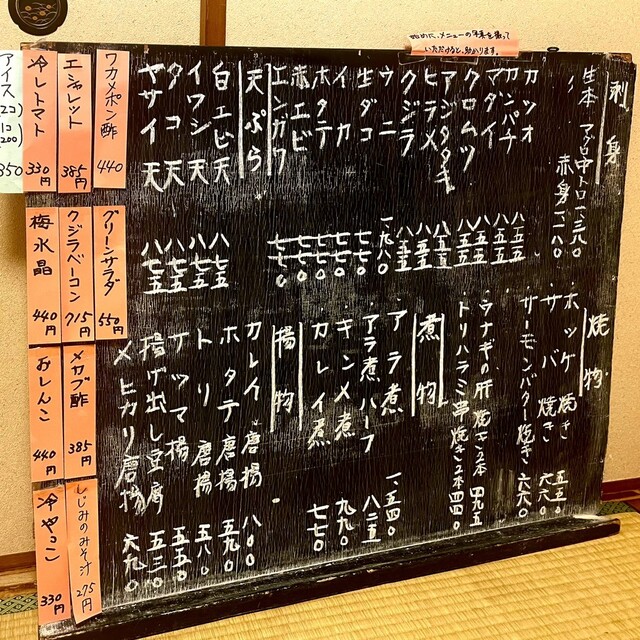 始めに、メニューの写真を撮って
いただけると、助かります。
刺身
生本マグロ中トロ 一、三八〇
赤身 一、一八〇
カツオ 八五五
カンパチ 八五五
マダイ 八五五
クロムツ 八五五
アジタタキ 八五五
ヒラメ 八五五
クジラ 八五五
ウニ 一、九八〇
生ダコ 七七〇
イカ 七七〇
ホタテ 七七〇
赤エビ 七七〇
エンガワ 七七〇
天ぷら
白エビ天 八七五
イワシ天 八七五
タコ天 八七五
ヤサイ天 八七五
焼物
・ホッケ焼き 五五〇
・サバ焼き 六六〇
・サーモンバター焼き 六六〇
・ウナギの肝焼き2本 四九五
・トリハラミ串焼き2本 四四〇
煮物
・アラ煮 一、五四〇
・アラ煮ハーフ 八二五
・キンメ煮 九九〇
・カレイ煮 七七〇
揚物
カレイ唐揚 八〇〇
ホタテ唐揚 五九〇
トリ唐揚 五八〇
サツマ揚 五五〇
揚げ出し豆腐 五三〇
メヒカリ唐揚 六九〇
ワカメポン酢 440
エシャレット 385円
冷しトマト 330円
アイス
(2コ)
350
1コ
200
グリーンサラダ 550円
クジラベーコン 715円
梅水晶 440円
メカブ酢 385円
おしんこ 440円
しじみのみそ汁 275円
冷やっこ 330円